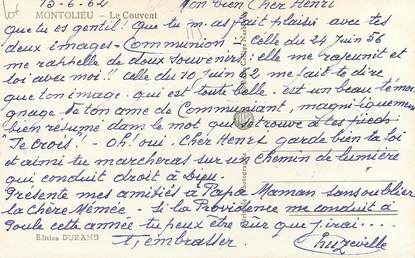 15-6-62 Mon bien Cher Henri
MONTOLIEU - Le Couvent
que tu es gentil! Que tu m'as fait plaisir avec tes
deux images-Communion - celle du 24 Juin 56
me rappelle de doux souvenirs: elle me rajeunit et
toi avec moi!! celle du 10 Juin 62 me fait te dire
que ton image - qui est toute belle - est un beau témoi
gnage. De ton âme de Communiant, magnifiquement
bien résumé dans le mot que je trouve à tes pieds
"Je crois! - Oh! oui. Cher Henri garde bien ta foi
et ainsi tu marcheras sur un chemin de lumière
qui conduit droit à Dieu.
Présente mes amitiés à Papa Maman sans oublier
la Chère Mémée - si la Providence me conduit à
cette année - tu peux être sûr que j'irai....
Edition DURAND T'embrasser.